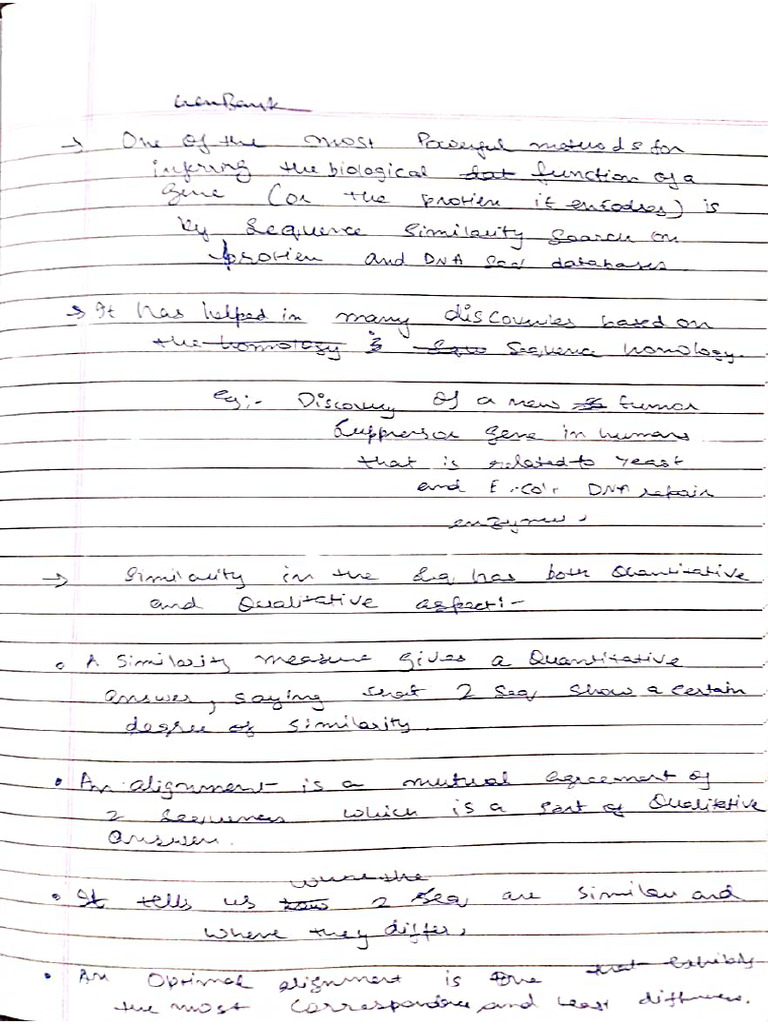 GenBank
→ One of the most Powerful methods for
infering the biological function of a
gene (or the protien it encodes) is
by Sequence Similarity Search on
protien and DNA Seq databases.
→ It has helped in many discoveries based on
the homology Sequence homology.
Eg:- Discovery of a new tumor
Suppressor gene in humans
that is related to yeast
and E.Coli DNA repair
enzymes.
→ Similarity in the Seq has both Quantitative
and Qualitative aspect:-
• A Similarity measure gives a Quantitative
answer, saying that 2 Seq show a certain
degree of similarity.
• An alignment is a mutual agreement of
2 Sequences which is a Sort of Qualitative
answer.
where the
• It tells us how 2 Seq are Similar and
where they differ.
• An Optimal alignment is one that exhibits
the most Correspondence and least difference.